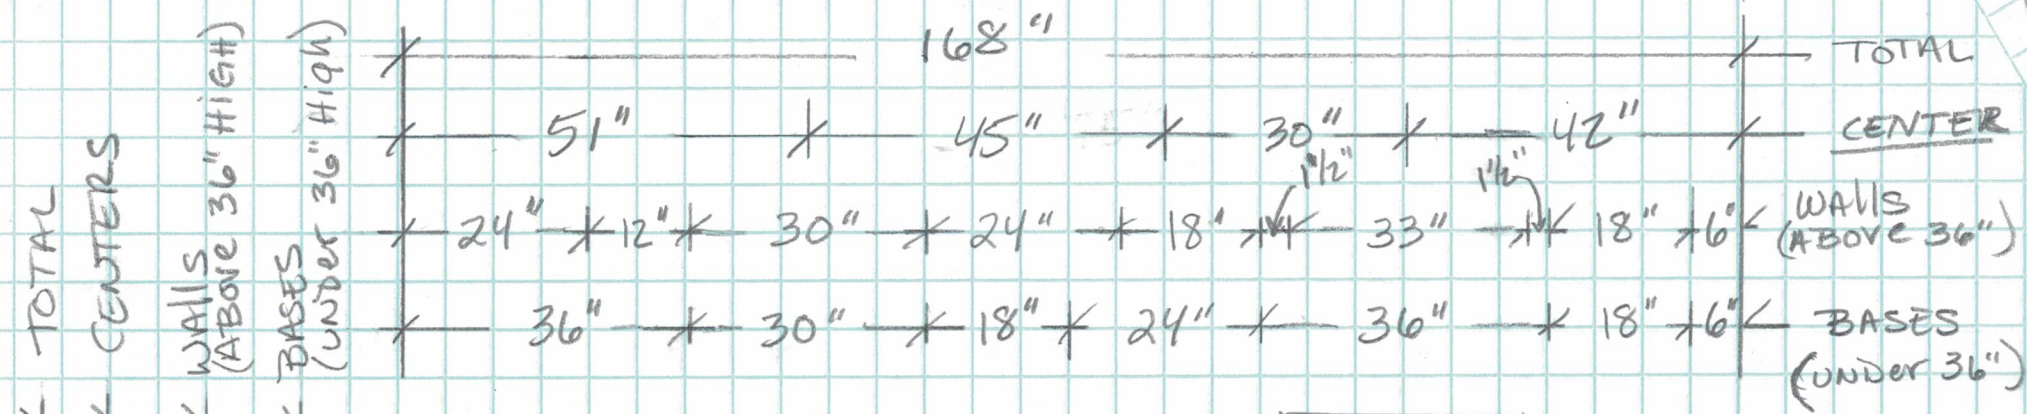 TOTAL
CENTERS
WAllS
(ABOVE 36" HIGH)
BASES
(UNDER 36" HIGH)
168" TOTAL
51" 45" 30" 42" CENTER
1 1/2" 1 1/2"
24" 12" 30" 24" 18" 33" 18" 6" WAllS
(ABOVE 36")
36" 30" 18" 24" 36" 18" 6" BASES
(UNDER 36")